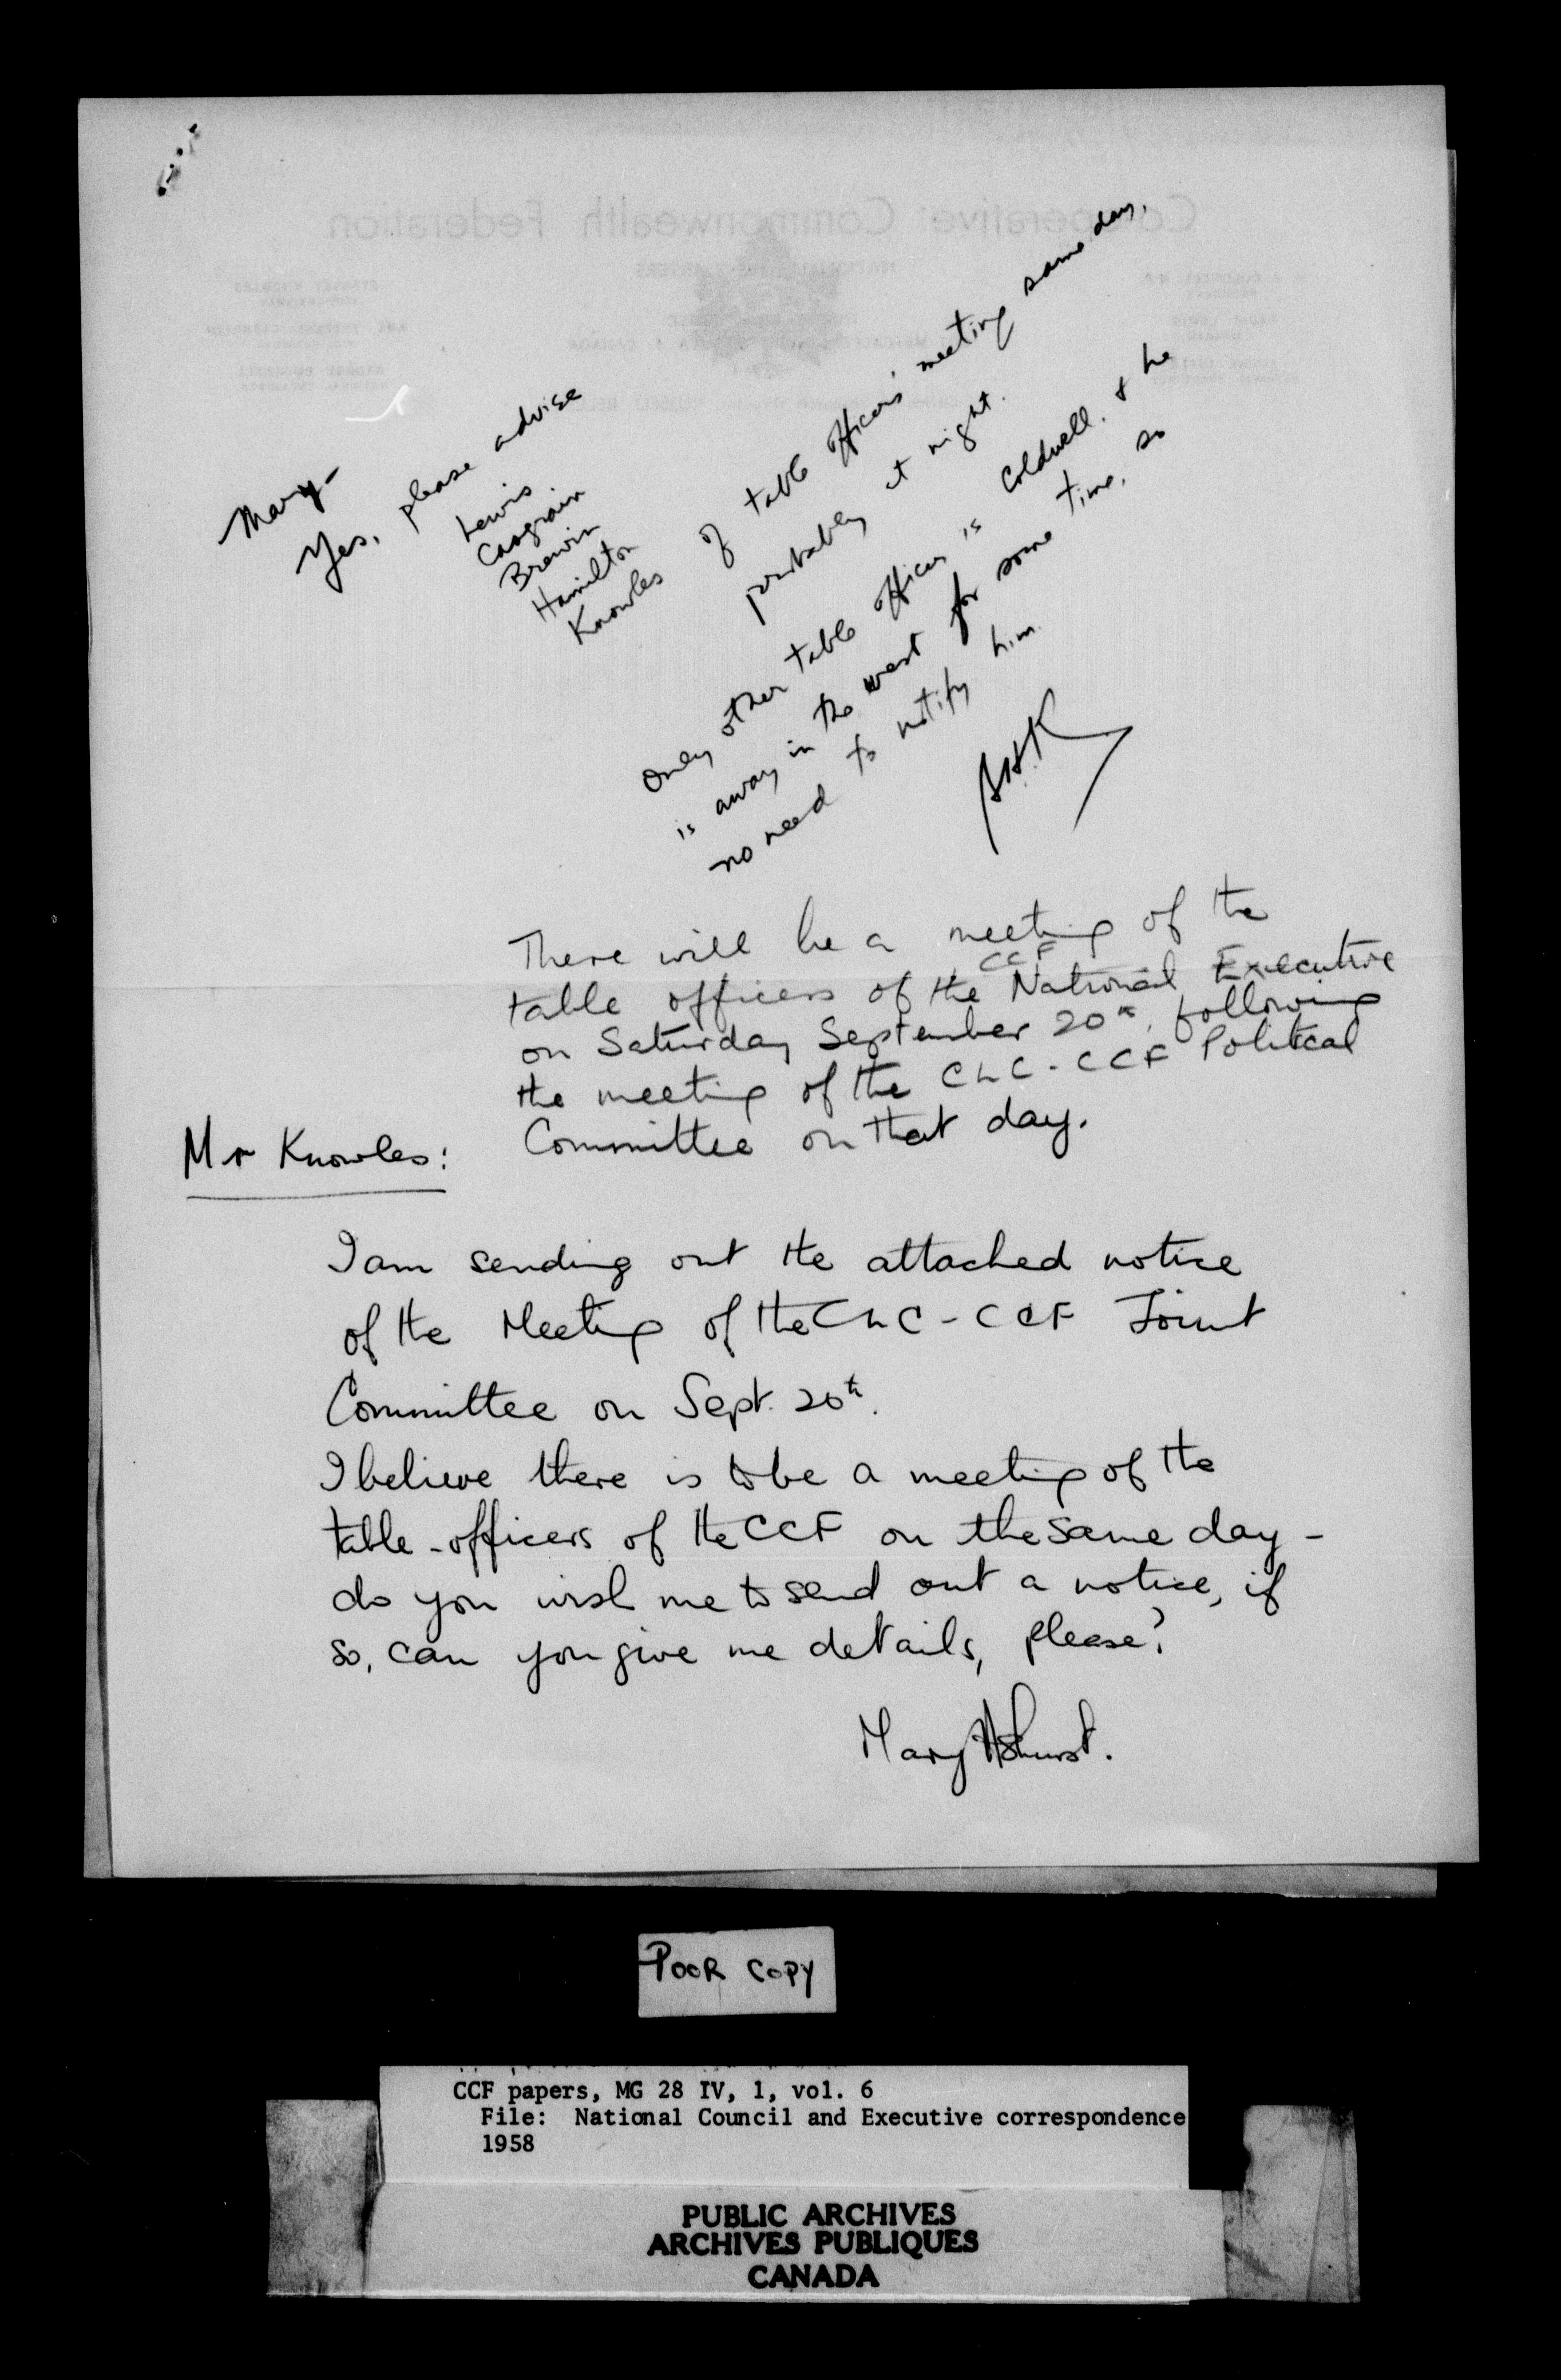 Co-operative Commonwealth Federation
Mary-
Yes, please advise
Lewis
Casgrain
Brewin
Hamilton
Knowles
of table officers' meeting same day,
probably at night.
Only other table officer is Coldwell. & he
is away in the west for some time, so
no need to notify him.
SHK
There will be a meeting of the
table officers of the CCF National Executive
on Saturday September 20th, following
the meeting of the CLC-CCF Political
Committee on that day.
Mr Knowles:
I am sending out the attached notice
of the Meeting of the CLC-CCF Joint
Committee on Sept. 20th.
I believe there is to be a meeting of the
table-officers of the CCF on the same day -
do you wish me to send out a notice, if
so, can you give me details, please?
Mary Ashurst.
POOR COPY
CCF papers, MG 28 IV, 1, vol. 6
File: National Council and Executive correspondence
1958
PUBLIC ARCHIVES
ARCHIVES PUBLIQUES
CANADA